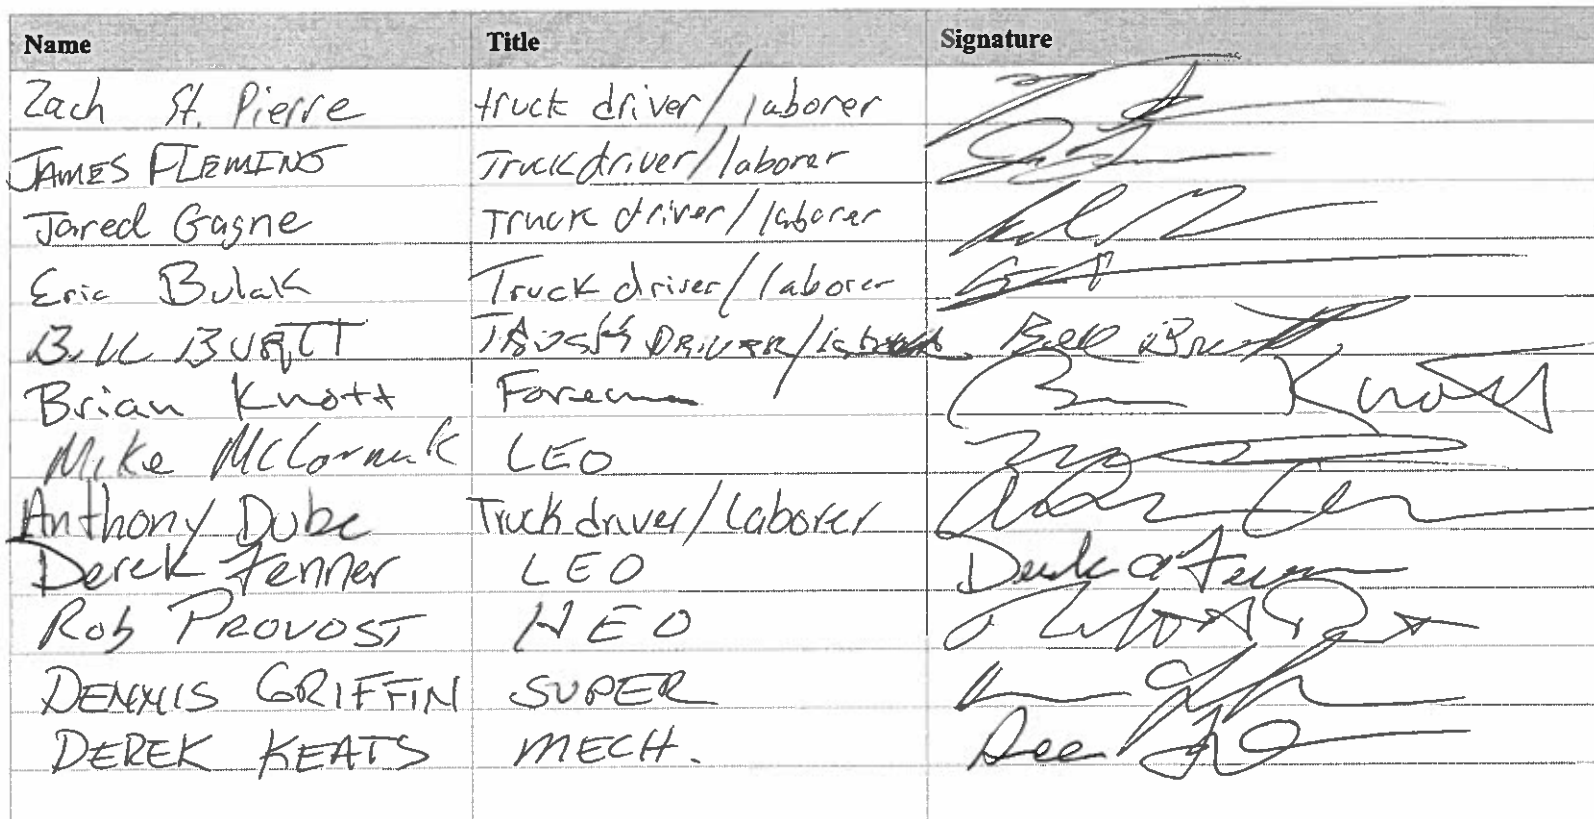 Name Title Signature
Zach St. Pierre truck driver/laborer
JAMES FLEMING Truck driver/laborer
Jared Gagne Truck driver/laborer
Eric Bulak Truck driver/laborer
BILL DRIVER/ Bill
Brian Knott Foreman Knott
Mike McCormick LEO
Anthony Dube Truck driver/Laborer
Derek Fenner LEO Derek Fenner
Rob PROVOST HEO
DENNIS GRIFFIN SUPER
DEREK KEATS MECH.